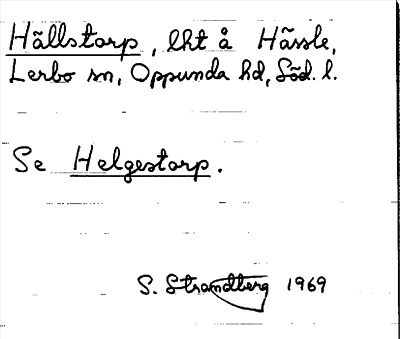 Hällstorp, lht å Hässle,
Lerbo sn, Oppunda hd, Söd. l.
Se Helgestorp.
S. Strandberg 1969